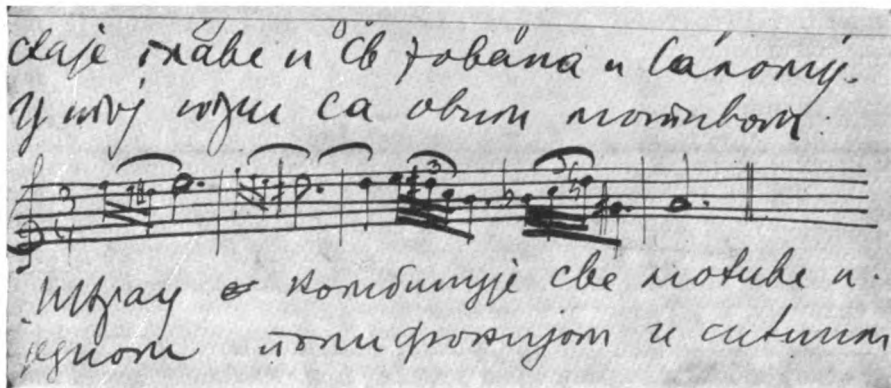 главе и Св Јована и Саломи.
У тој игри са овим мотивом:
3 4 3 3
комбинује све мотиве и
једном полифонијом и ситним